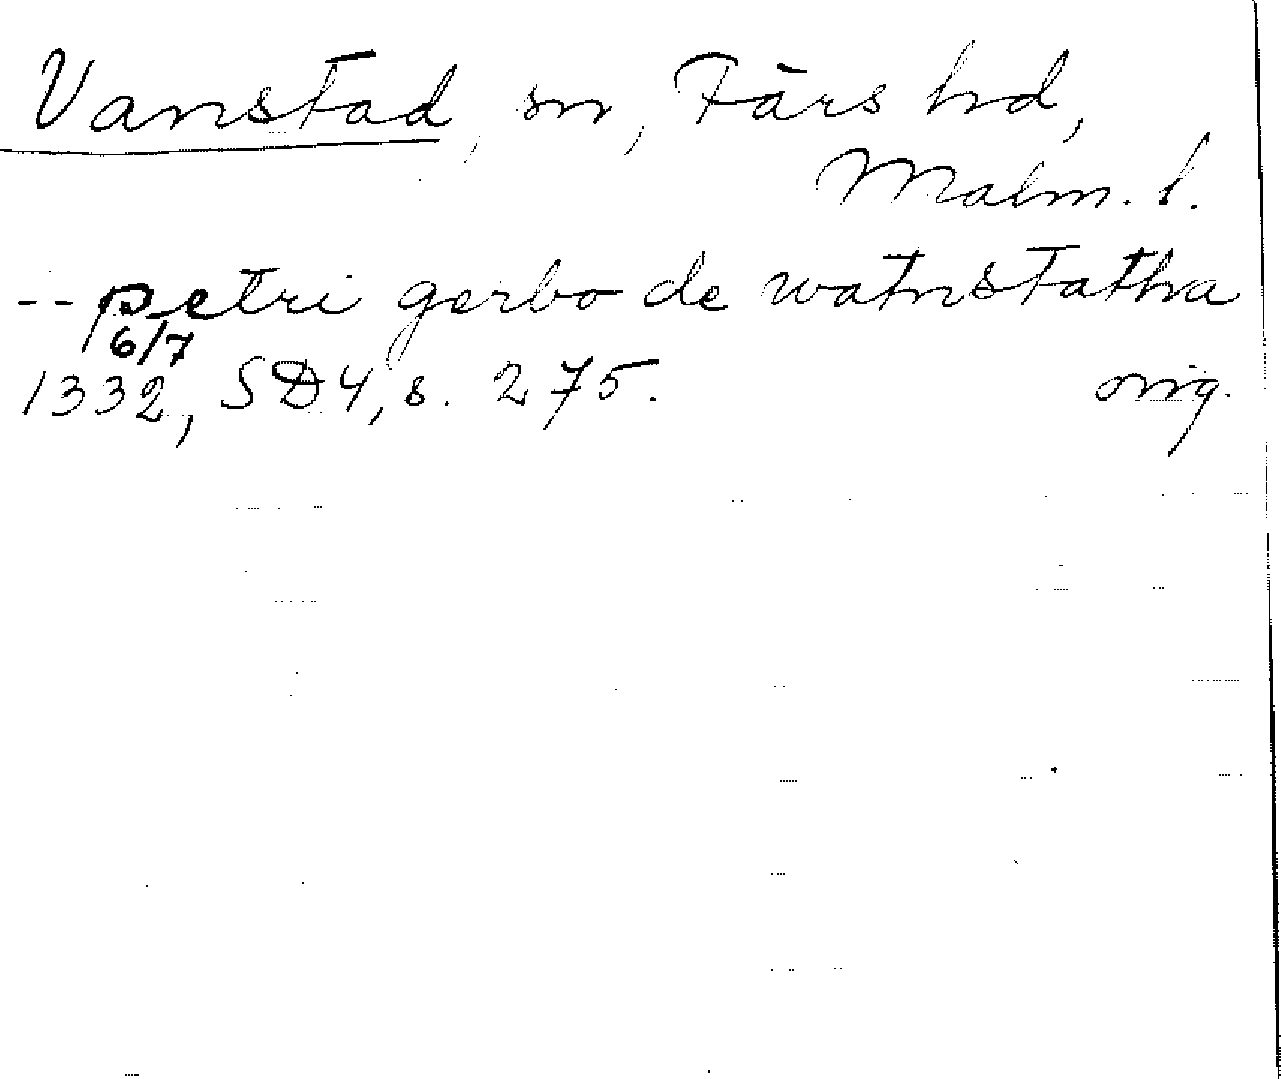 Vanstad, sn, Färs hd,
Malm. l.
-- petri gerbo de watnstatha
6/7
1332, SD4, s. 275. orig.